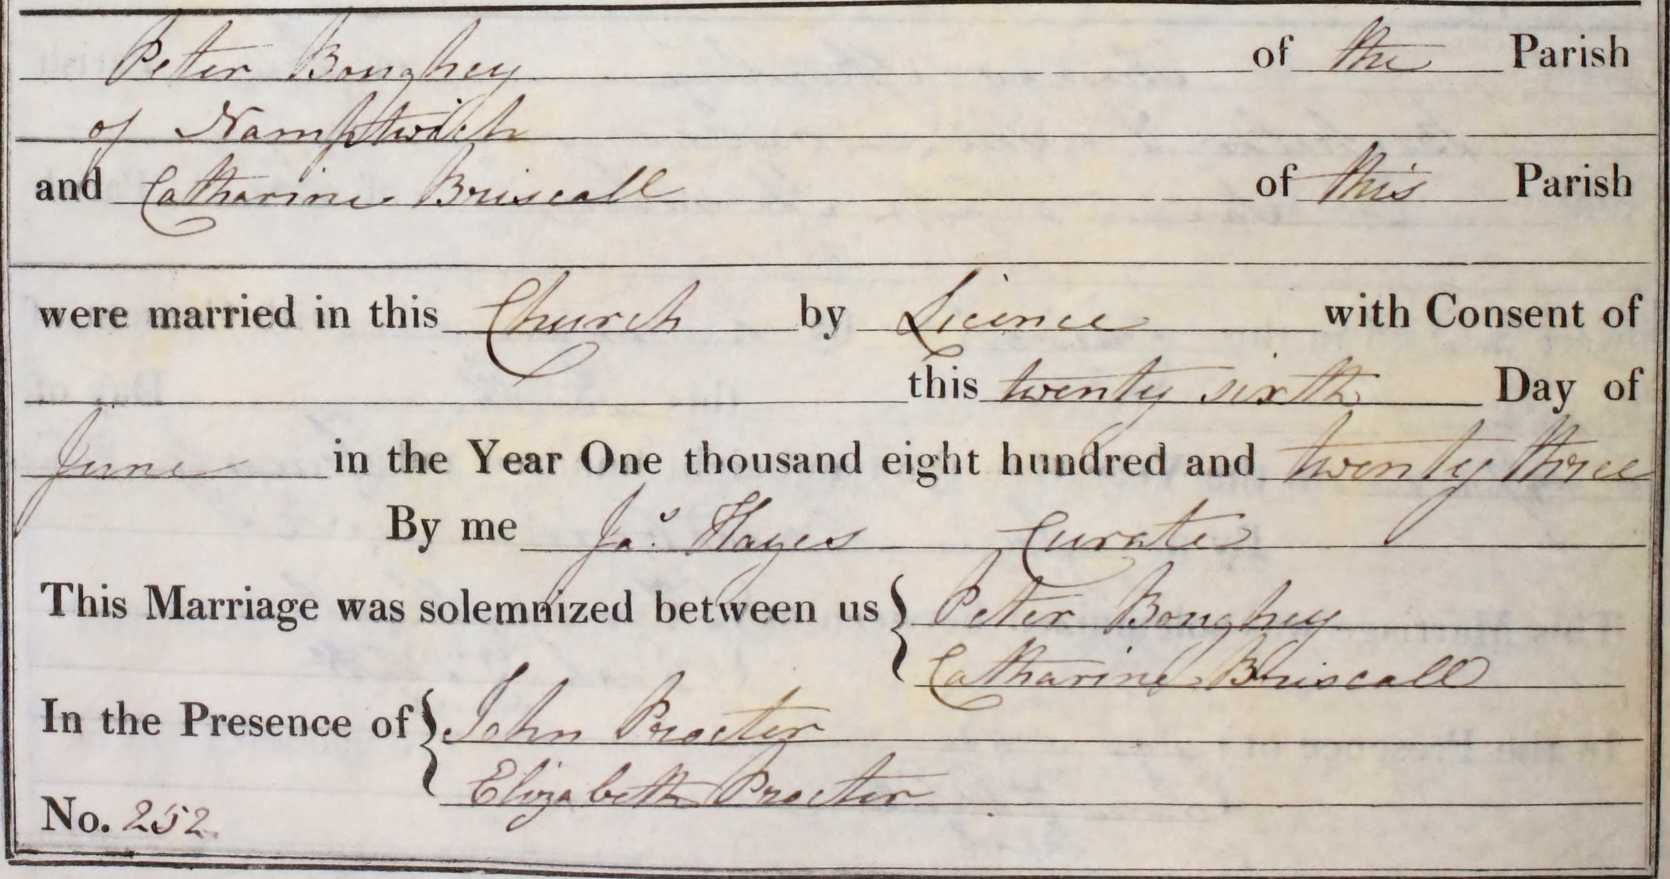 Peter Boughey of the Parish
of Namptwich
and Catharine Briscall of this Parish
were married in this Church by Licence with Consent of
this twenty sixth Day of
June in the Year One thousand eight hundred and twenty three
By me Jas. Hayes Curate
This Marriage was solemnized between us } Peter Boughey
Catharine Briscall
In the Presence of } John Procter
Elizabeth Procter
No. 252